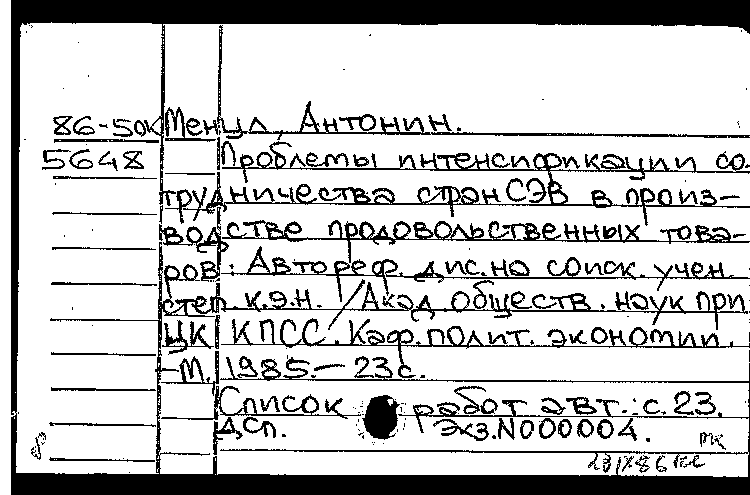 86-50к Менцл, Антонин.
5648 Проблемы интенсификации со-
трудничества стран СЭВ в произ-
водстве продовольственных това-
ров: Автореф. дис. на соиск. учен.
степ. к.э.н. / Акад. обществ. наук при
ЦК КПСС. Каф. полит. экономии.
-М., 1985.- 23 с.
Список работ авт.: с. 23.
Дсп. Экз.N000004.